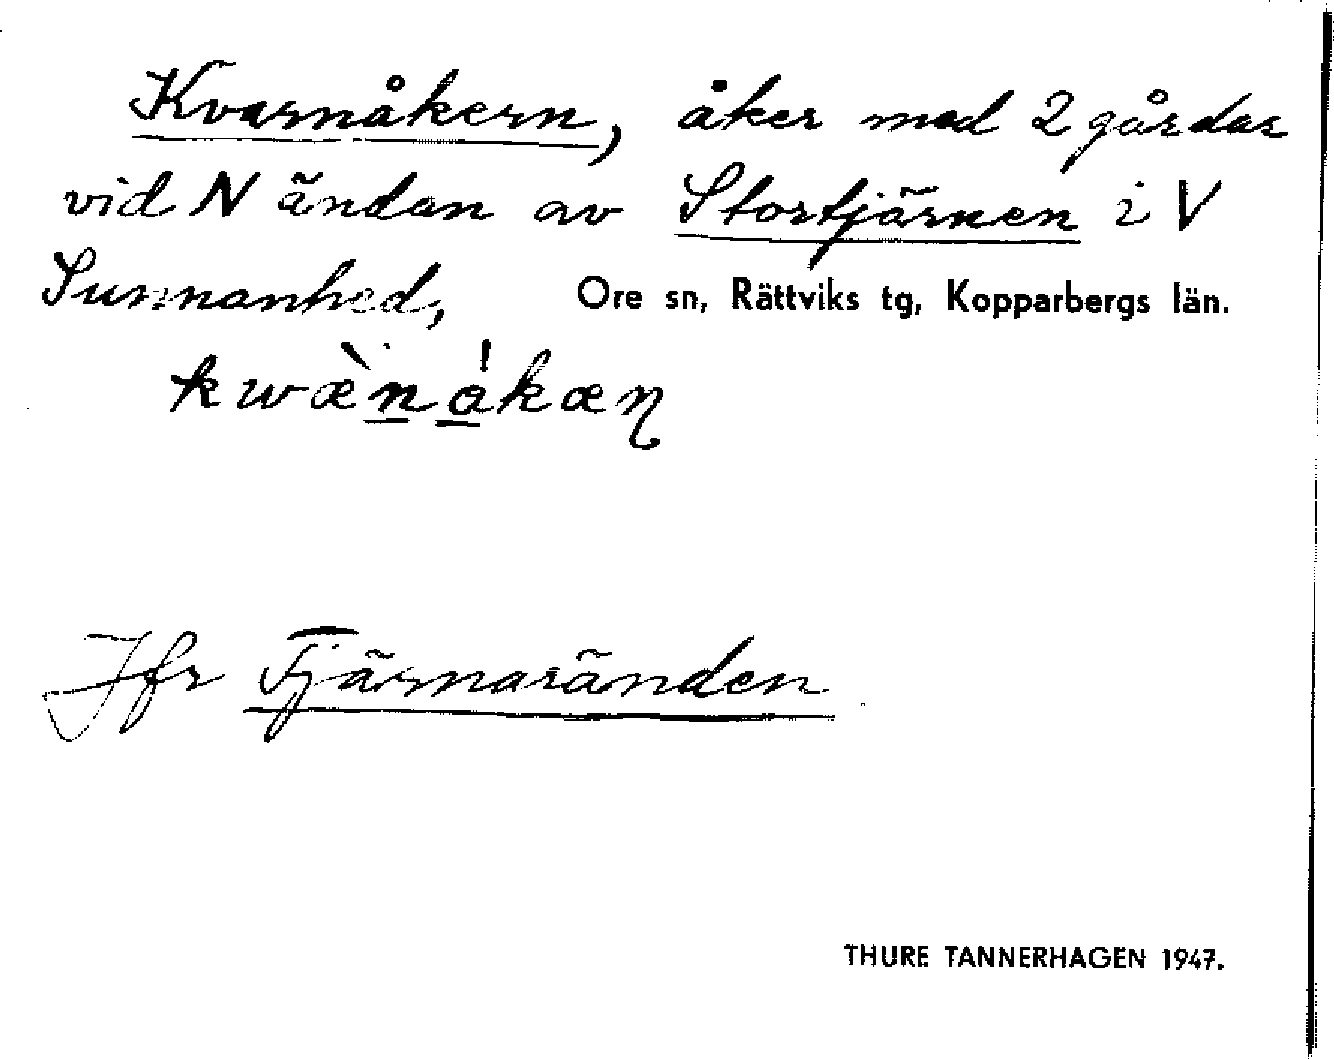 Kvarnåkern, åker med 2 gårdar
vid N ändan av Stortjärnen i V
Sunnanhed, Ore sn, Rättviks tg, Kopparbergs län.
kwæ̀nåkæn
Jfr Tjärnaränden
THURE TANNERHAGEN 1947.